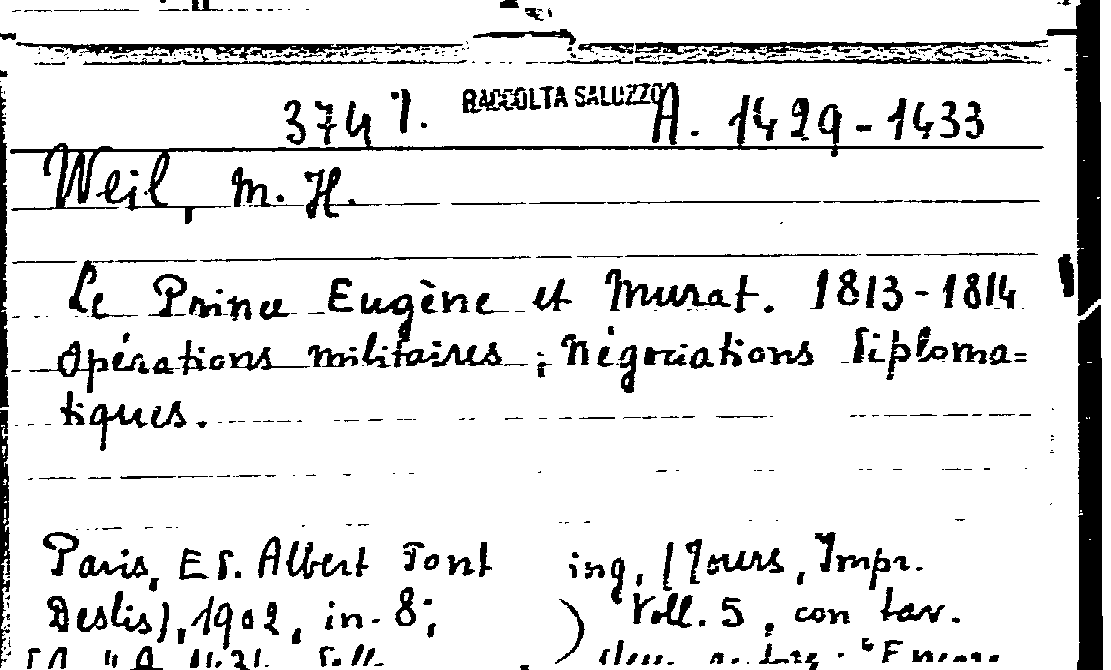 374 7. RACCOLTA SALUZZO A. 1429-1433
Weil, M. H.
Le Prince Eugène et Murat. 1813-1814
Opérations militaires ; Négociations Diploma=
tiques.
Paris, Ed. Albert Font ing, (Tours, Impr.
Deslis), 1902, in-8; Voll. 5, con tav.